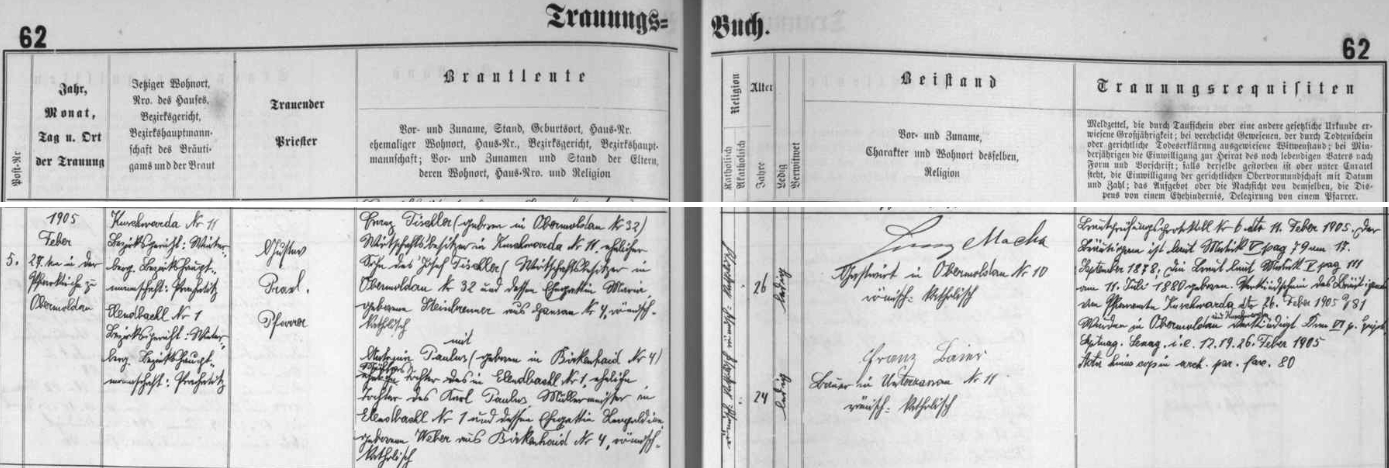 62
Trauungs=
Buch.
62
Post-Nr
Jahr,
Monat,
Tag u. Ort
der Trauung
Jetziger Wohnort,
Nro. des Hauses,
Bezirksgericht,
Bezirkshauptmann-
schaft des Bräuti-
gams und der Braut
Trauender
Priester
Brautleute
Vor- und Zuname, Stand, Geburtsort, Haus-Nr.
ehemaliger Wohnort, Haus-Nr., Bezirksgericht, Bezirkshaupt-
mannschaft; Vor- und Zunamen und Stand der Eltern,
deren Wohnort, Haus-Nro. und Religion
Religion
Katholisch
Akatholisch
Alter
Jahre
Ledig
Verwitwet
Beistand
Vor- und Zuname,
Charakter und Wohnort desselben,
Religion
Trauungsrequisiten
Meldzettel, die durch Taufschein oder eine andere gesetzliche Urkunde er-
wiesene Großjährigkeit; bei verehelicht Gewesenen, der durch Todtenschein
oder gerichtliche Todeserklärung ausgewiesene Witwenstand; bei Min-
derjährigen die Einwilligung zur Heirat des noch lebendigen Vaters nach
Form und Vorschrift; falls derselbe gestorben ist oder unter Curatel
steht, die Einwilligung der gerichtlichen Obervormundschaft mit Datum
und Zahl; das Aufgebot oder die Nachsicht von demselben, die Dis-
pens von einem Ehehindernis, Delegirung von einem Pfarrer.
5.
1905
Feber
27. in der
Pfarrkirche zu
Obermoldau
Kuschwarda Nr 11
Bezirksgericht: Winter-
berg. Bezirkshaupt-
mannschaft: Prachatitz
Elendbachl Nr 1
Bezirksgericht: Winter-
berg Bezirkshaupt-
mannschaft: Prachatitz
Gustav
Pfarrer
Franz Tischler (geboren in Obermoldau Nr 32)
Wirtschaftsbesitzer in Kuschwarda Nr 11, ehelicher
Sohn des Josef Tischler, Wirtschaftsbesitzer in
Obermoldau Nr 32 und dessen Ehegattin Maria
geborene aus Nr 4, römisch-
katholisch
mit
Paulus (geboren in Birkenhaid Nr 4)
Tochter des in Elendbachl Nr 1, eheliche
Tochter des Karl Paulus Müllermeister in
Elendbachl Nr 1 und dessen Ehegattin Leopoldine
geborenen Weber aus Birkenhaid Nr 4, römisch-
katholisch
26
ledig
24
ledig
Franz Macha
Gastwirt in Obermoldau Nr 10
römisch-katholisch
Franz Baier
Bauer in Nr 11
römisch-katholisch
Brautprüfungsprotokoll Nr 6 dto 11. Feber 1905. Der
Bräutigam ist laut Matrik V pag 79 am 17.
September 1878, die Braut laut Matrik V pag 111
am 11. Juli 1880 geboren. Verkündschein des Bräutigams
vom Pfarramte Kuschwarda dto 26. Feber 1905 Z 81
Wurden in Obermoldau verkündigt
i.e. 12. 19. 26. Feber 1905
in arch. par. fasc. 80